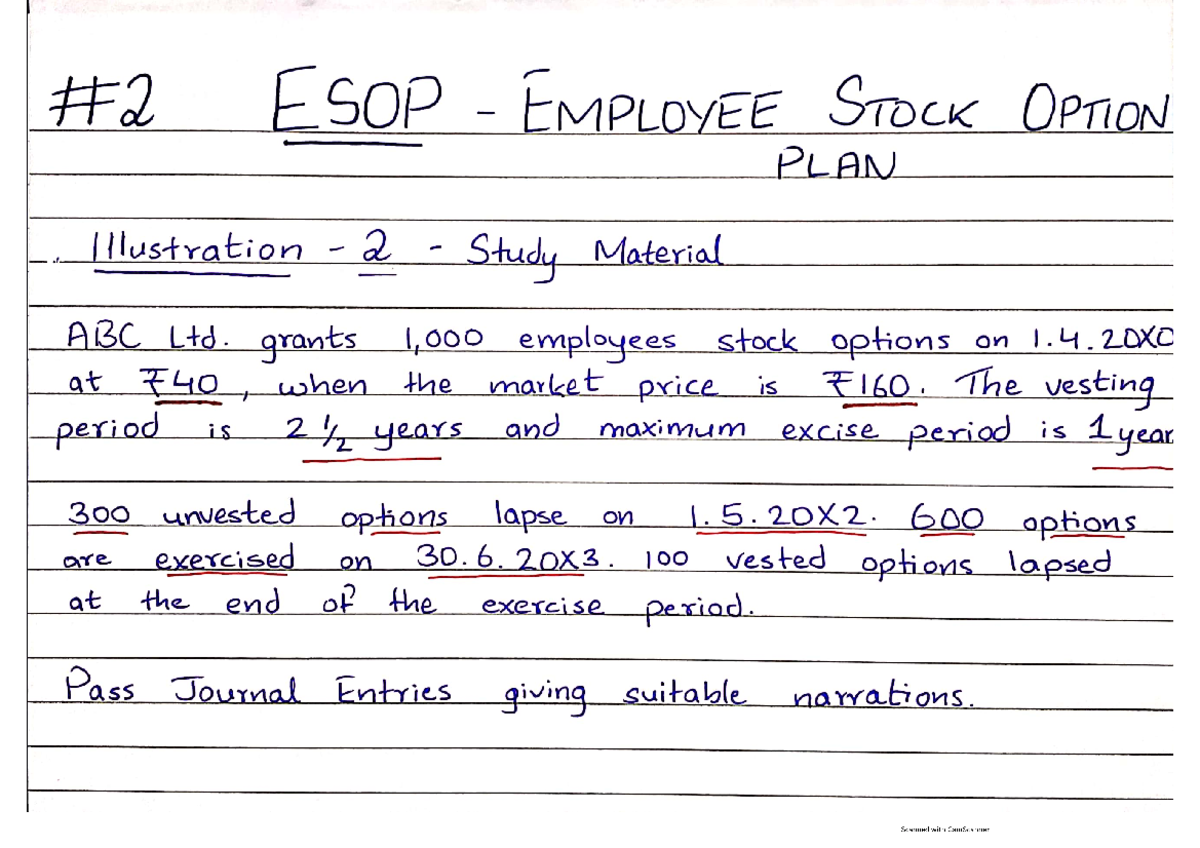 #2 ESOP - EMPLOYEE STOCK OPTION
PLAN
Illustration - 2 - Study Material
ABC Ltd. grants 1,000 employees stock options on 1.4.20X0
at ₹40, when the market price is ₹160. The vesting
period is 2 ½ years and maximum excise period is 1 year
300 unvested options lapse on 1.5.20X2. 600 options
are exercised on 30.6.20X3. 100 vested options lapsed
at the end of the exercise period.
Pass Journal Entries giving suitable narrations.
Scanned with CamScanner